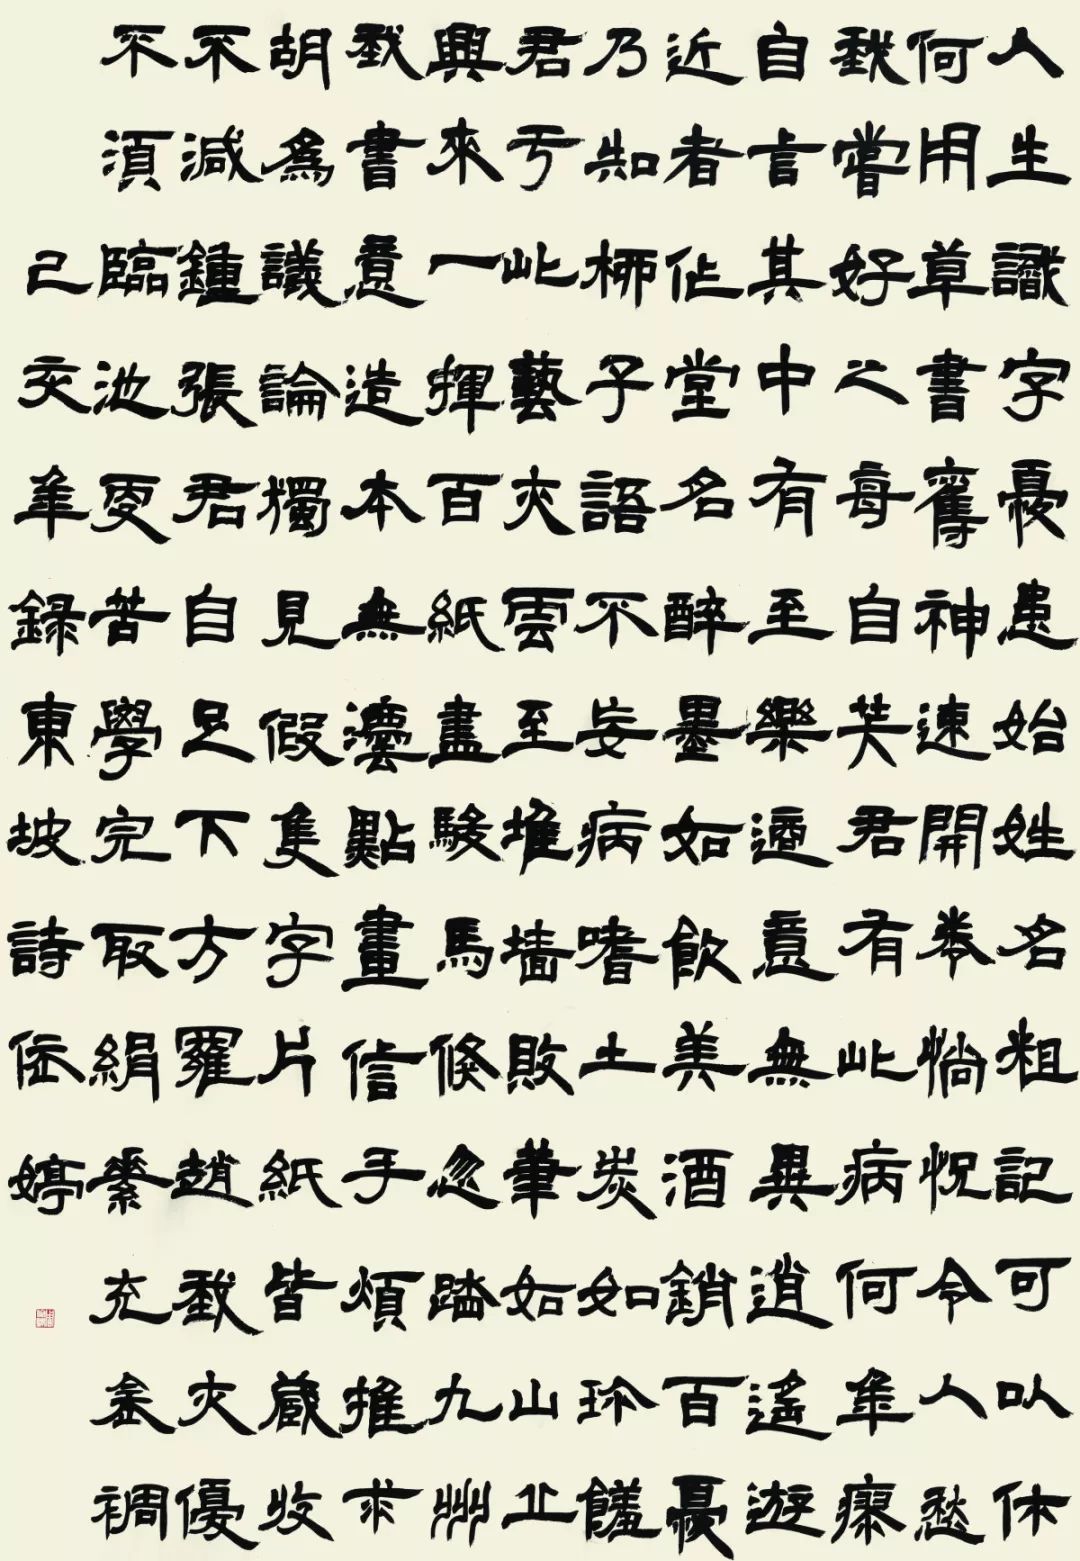 人生識字憂患始姓名粗記可以休
何用草書奪神速開卷惝怳令人愁
我嘗好之每自笑君有此病何年瘳
自言其中有至樂適意無異逍遙遊
近者作堂名醉墨如飲美酒銷百憂
乃知柳子語不妄病嗜土炭如珍饈
君于此藝亦雲至堆墻敗筆如山丘
興來一揮百紙盡駿馬倏忽踏九州
我書意造本無灋點畫信手煩推求
胡為議論獨見假隻字片紙皆藏收
不減鍾張君自足下方羅趙我亦優
不須臨池更苦學完取絹素充衾裯
己亥年録東坡詩依婷